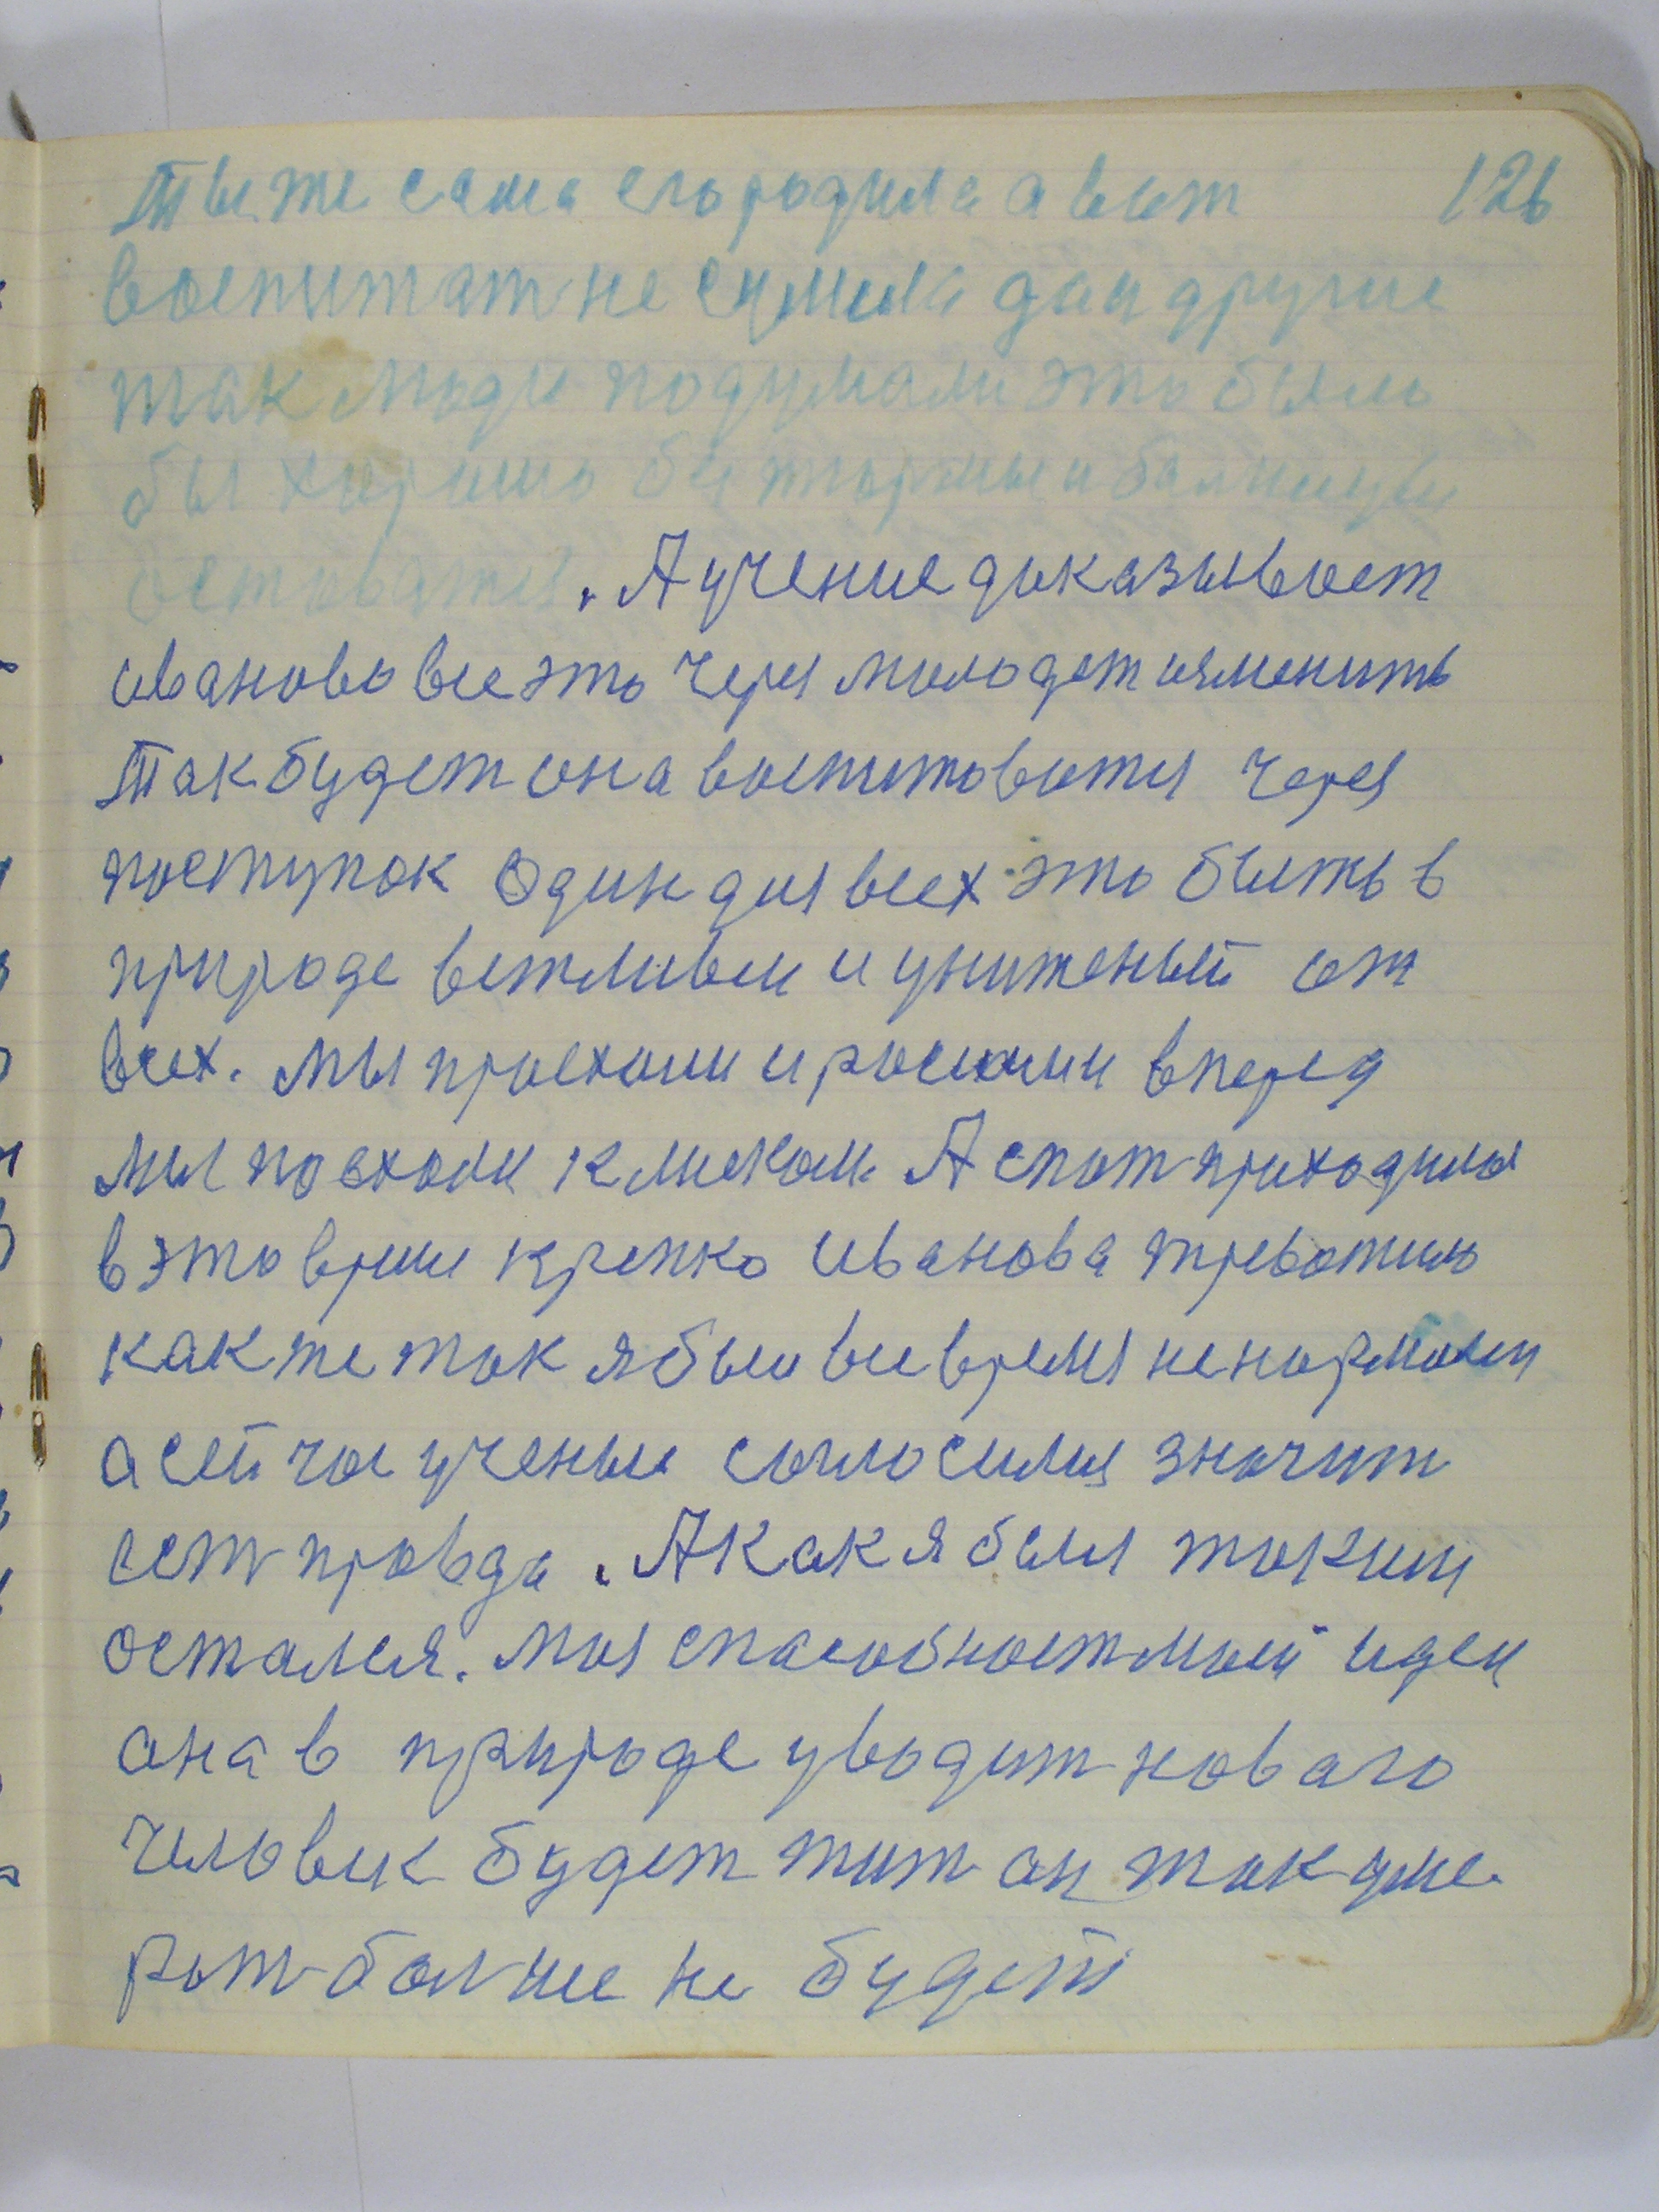 126
Ты же сама его родила а вот
воспитат не сумела да и другие
так люди подумали это было
бы хорошо бы тюрмы и болницы
остават . А учение доказывает
иванова все это через молодет изменить
Так будет она воспитоватя через
поступок один для всех это быть в
природе вежливым и униженый от
всех. мы проехали и россыли вперед
мы поехали к лискам А спат приходилос
в это время крепко иванова тревожило
как же так я был все время ненормални
а сейчас ученые согласилис значит
ест правда. А как я был таким
остался. моя способност моей идеи
она в природе уводит новаго
человек будет жит он так уме
рат болше не будет